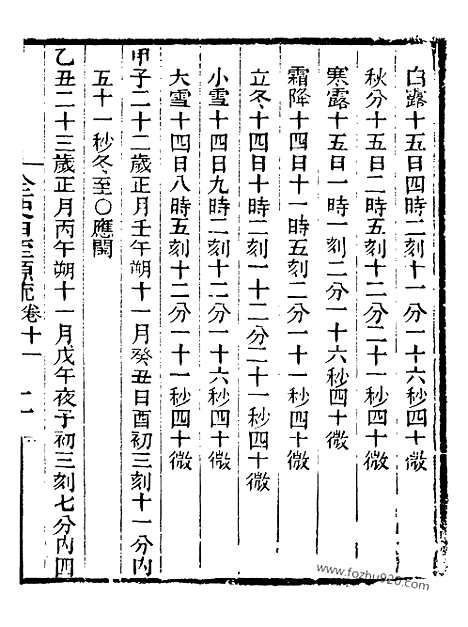 白露十五日四時二刻十一分一十六秒四十微
秋分十五日二時五刻十二分二十一秒四十微
寒露十五日一時一刻二分一十六秒四十微
霜降十四日十一時五刻二分一十一秒四十微
立冬十四日十時二刻一十二分二十一秒四十微
小雪十四日九時二刻十二分一十六秒四十微
大雪十四日八時五刻十二分一十一秒四十微
甲子二十二歲正月壬午朔十一月癸丑日酉初三刻十一分內
五十一秒冬至○應閏
乙丑二十三歲正月丙午朔十一月戊午夜子初三刻七分內四
全史日至源流卷十一
www.fozhu920.com